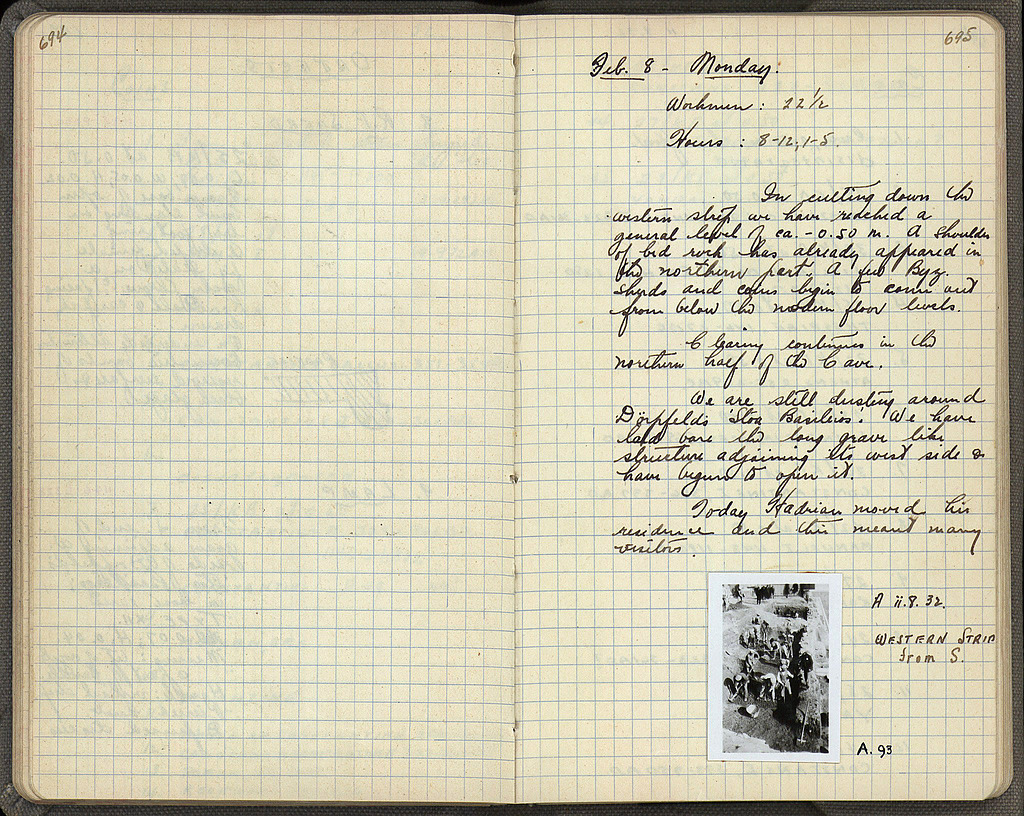 694
695
Feb. 8 - Monday.
Workmen : 22 1/2
Hours : 8-12, 1-5.
In cutting down the
western strip we have reached a
general level of ca. - 0.50 m. A shoulder
of bed rock has already appeared in
the northern part. A few Byz.
sherds and coins begin to come out
from below the modern floor levels.
Clearing continues in the
northern half of the Cave.
We are still dusting around
Dörpfeld's 'Stoa Basileios'. We have
laid bare the long grave like
structure adjoining its west side &
have begun to open it.
Today Hadrian moved his
residence and this meant many
visitors.
A ii.8.32.
WESTERN STRIP
from S.
A. 93